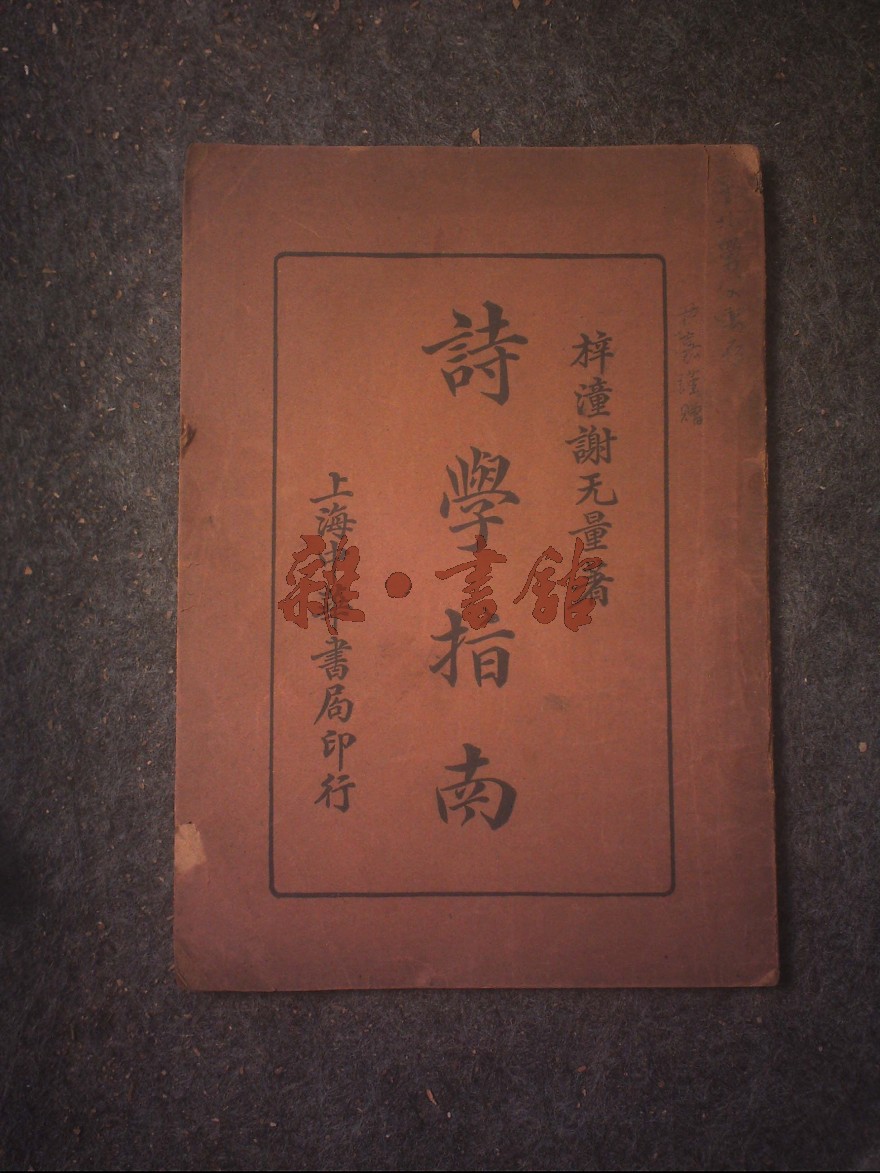 梓潼謝无量著
詩學指南
上海中華書局印行
雜·書館
謹贈